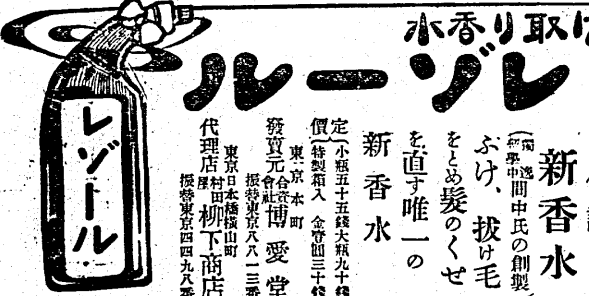 け取り香水
レゾール
新香水
(獨逸
化學中間中氏の創製
ぶけ、抜け毛
をとめ髪のくせ
を直す唯一の
新香水
定價
小瓶五十五錢大瓶九十錢
特製箱入 金壹圓三十錢
東京本町
發賣元合資會社博愛堂
振替東京八八一三番
東京日本橋橫山町
代理店村田屋柳下商店
振替東京四四九八番
レゾール